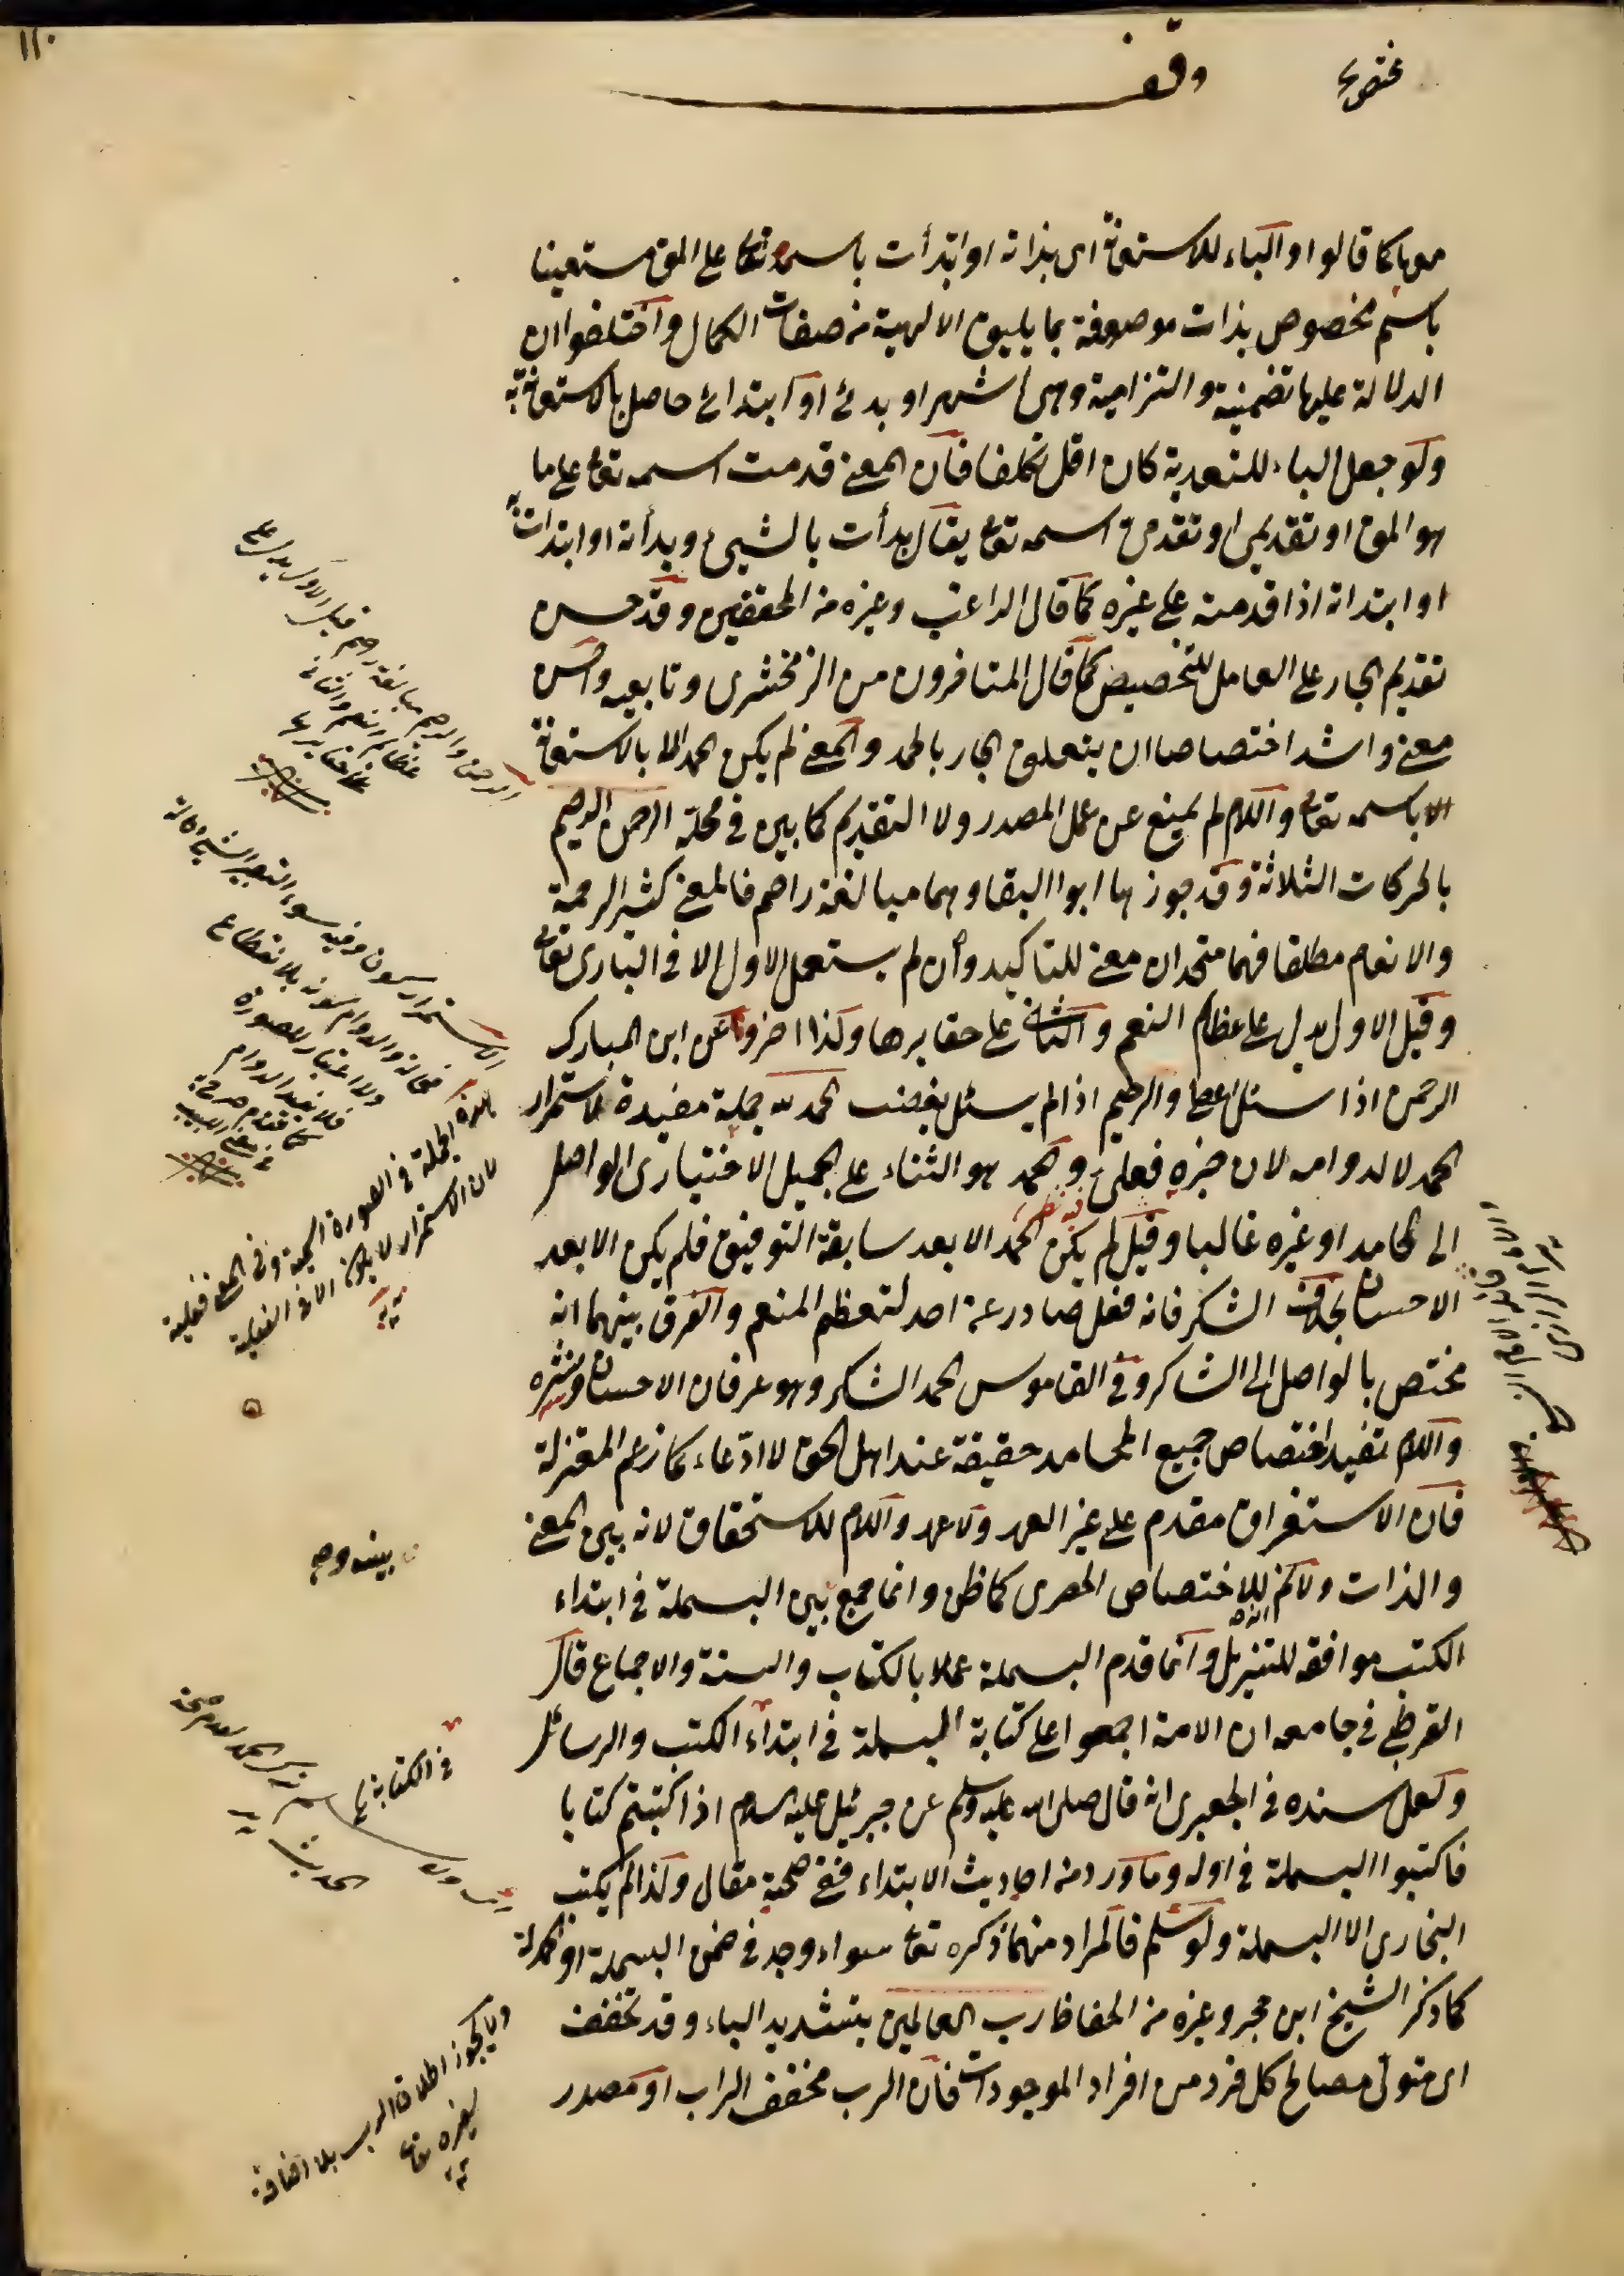 ١١٠
وقف
معها كما قالوا والباء للاستعانة اى بذاته او ابتدأت باسمه تعا على المق مستعينا
باسم مخصوص بذات موصوفة بما يليق الالهية من صفات الكمال واختلفوا ان
الدلالة عليها تضمنية والتزامية وهى اشهر او بدئ او ابتدائ حاصل بالاستعانة به
ولو جعل الباء للتعدية كان اقل تكلفا فان المعنى قدمت اسمه تعا على ما
هو المق او تقديمى او تقدم اسمه تعا يقال بدأت بالشيئ وبدأته او ابتدأت به
او ابتدأته اذا قدمته على غيره كما قال الراغب وغيره من المحققين وقد حسن
تقديم الجار على العامل للتخصيص كما قال المتأخرون من الزمخشرى وتابعيه واحسن
معنى واشد اختصاصا ان يتعلق الجار بالحمد والمعنى لم يكن الحمد الا بالاستعانة
الا باسمه تعا واللام لم يمنع عن عمل المصدر ولا التقديم كما بين فى محله الرحمن الرحيم
بالحركات الثلاثة وقد جوزها ابوا البقا وهما مبالغة راحم فالمعنى كثير الرحمة
والانعام مطلقا فهما متحدان معنى للتاكيد وان لم يستعمل الاول الا فى البارى تعا
وقيل الاول يدل على عظائم النعم والثانى على حقايرها وكذا اخرونا عن ابن المبارك
الرحمن اذا سئل اعطا والرحيم اذا لم يسئل يغضب الحمد لله جملة مفيدة لاستمرار
الحمد لا لدوامه لان خبره فعلى والحمد هو الثناء على الجميل الاختيارى الواصل
الى الحامد او غيره غالبا وقيل لم يكن الحمد الا بعد سابقة التوفيق فلم يكن الا بعد
الاحسان بخلاف الشكر فانه فعل صادر عن احد لتعظيم المنعم والفرق بينهما انه
مختص بالواصل الى الشاكر وفى القاموس الحمد الشكر وهو عرفان الاحسان ونشره
واللام تفيد اختصاص جميع المحامد حقيقة عند اهل الحق لا ادعاء كما زعم المعتزلة
فان الاستغراق مقدم على غير العهد ولا عهد واللام للاستحقاق لانه بين المعنى
والذات ولا كن للاختصاص الحصرى كما ظن وانما جمع بين البسملة فى ابتداء
الكتب موافقه للتنزيل وانما قدم البسملة عملا بالكتاب والسنة والاجماع قال
القرطبى فى جامعه ان الامة اجمعوا على كتابة البسملة فى ابتداء الكتب والرسائل
ولعل سنده فى الجعبرى انه قال صلى الله عليه وسلم عن جبرئيل عليه السلام اذا كتبتم كتابا
فاكتبوا البسملة فى اوله وما ورد من احاديث الابتداء ففى صحته مقال ولذا لم يكتب
البخارى الا البسملة ولو سلم فالمراد منهما ذكره تعا سواء وجد فى ضمن البسملة او الحمدلة
كما ذكر الشيخ ابن حجر وغيره من الحفاظ رب العالمين بتشديد الباء وقد تخفف
اى متولى مصالح كل فرد من افراد الموجودات فان الرب مخفف الراب او مصدر
الرحمن والرحيم مبالغة راحم قيل الاول يدل على
عظائم النعم والثانى
على حقايرها
هذه الجملة فى الصورة اسمية وفى المعنى فعلية
لان الاستمرار لا يكون الا فى الفعلية
بينه وجه
فى الكتابة
الحديث
ولا يجوز اطلاق الرب بلا اضافة
لغيره تعا